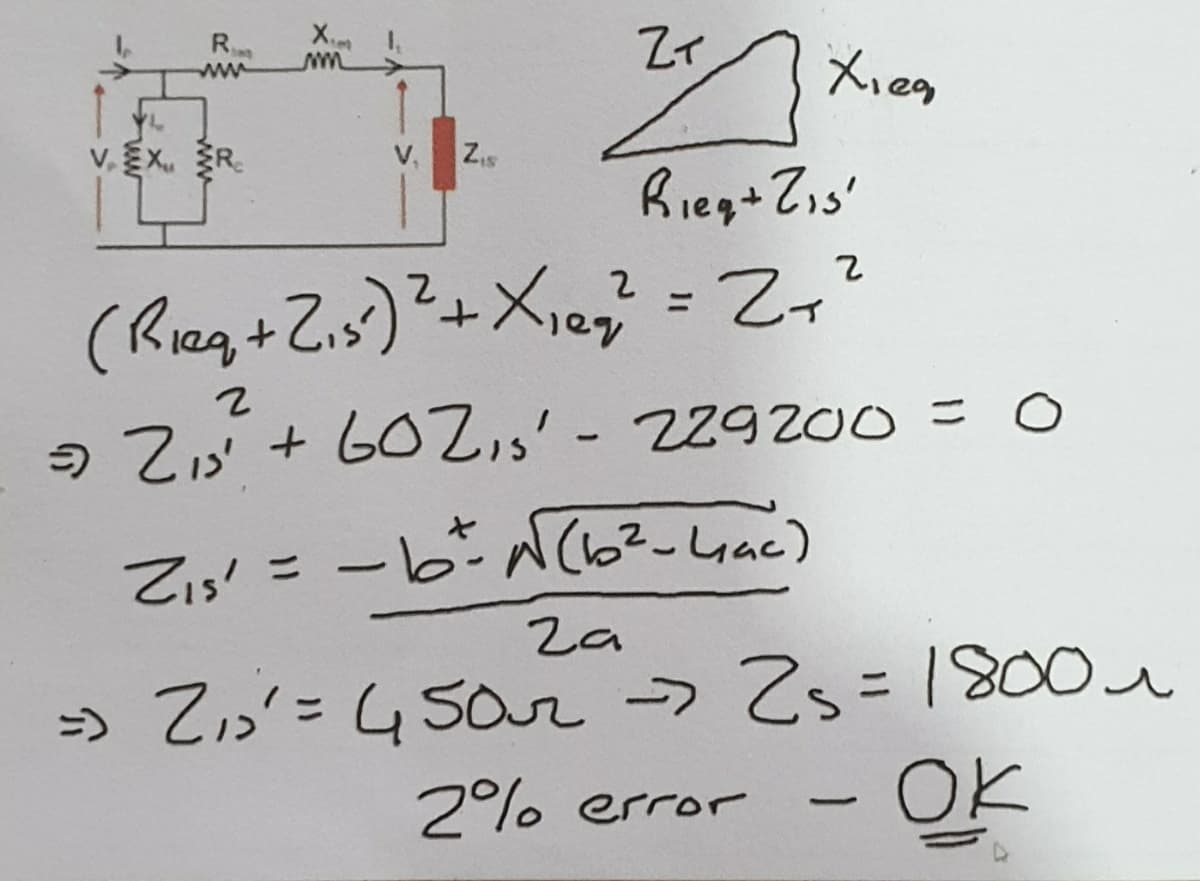 R
X
I
V
X
R
V
Z
ZT
X1eq
R1eq+Z1s'
(R1eq+Z1s')²+X1eq² = ZT²
⇒ Z1s'² + 60Z1s' - 229200 = 0
Z1s' = -b±√(b²-4ac)
2a
⇒ Z1s' = 450Ω → Zs = 1800Ω
2% error - OK